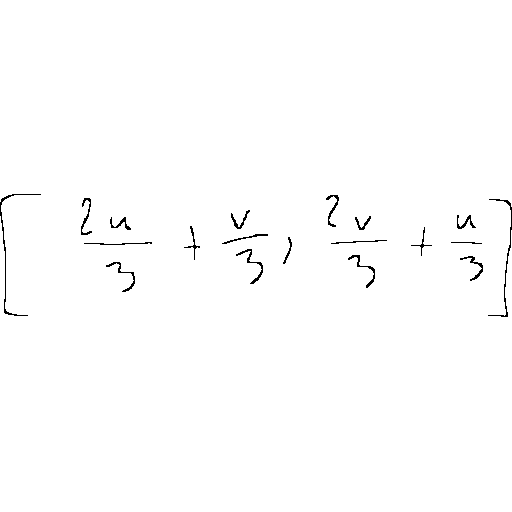 [ 2u/3 + v/3, 2v/3 + u/3 ]